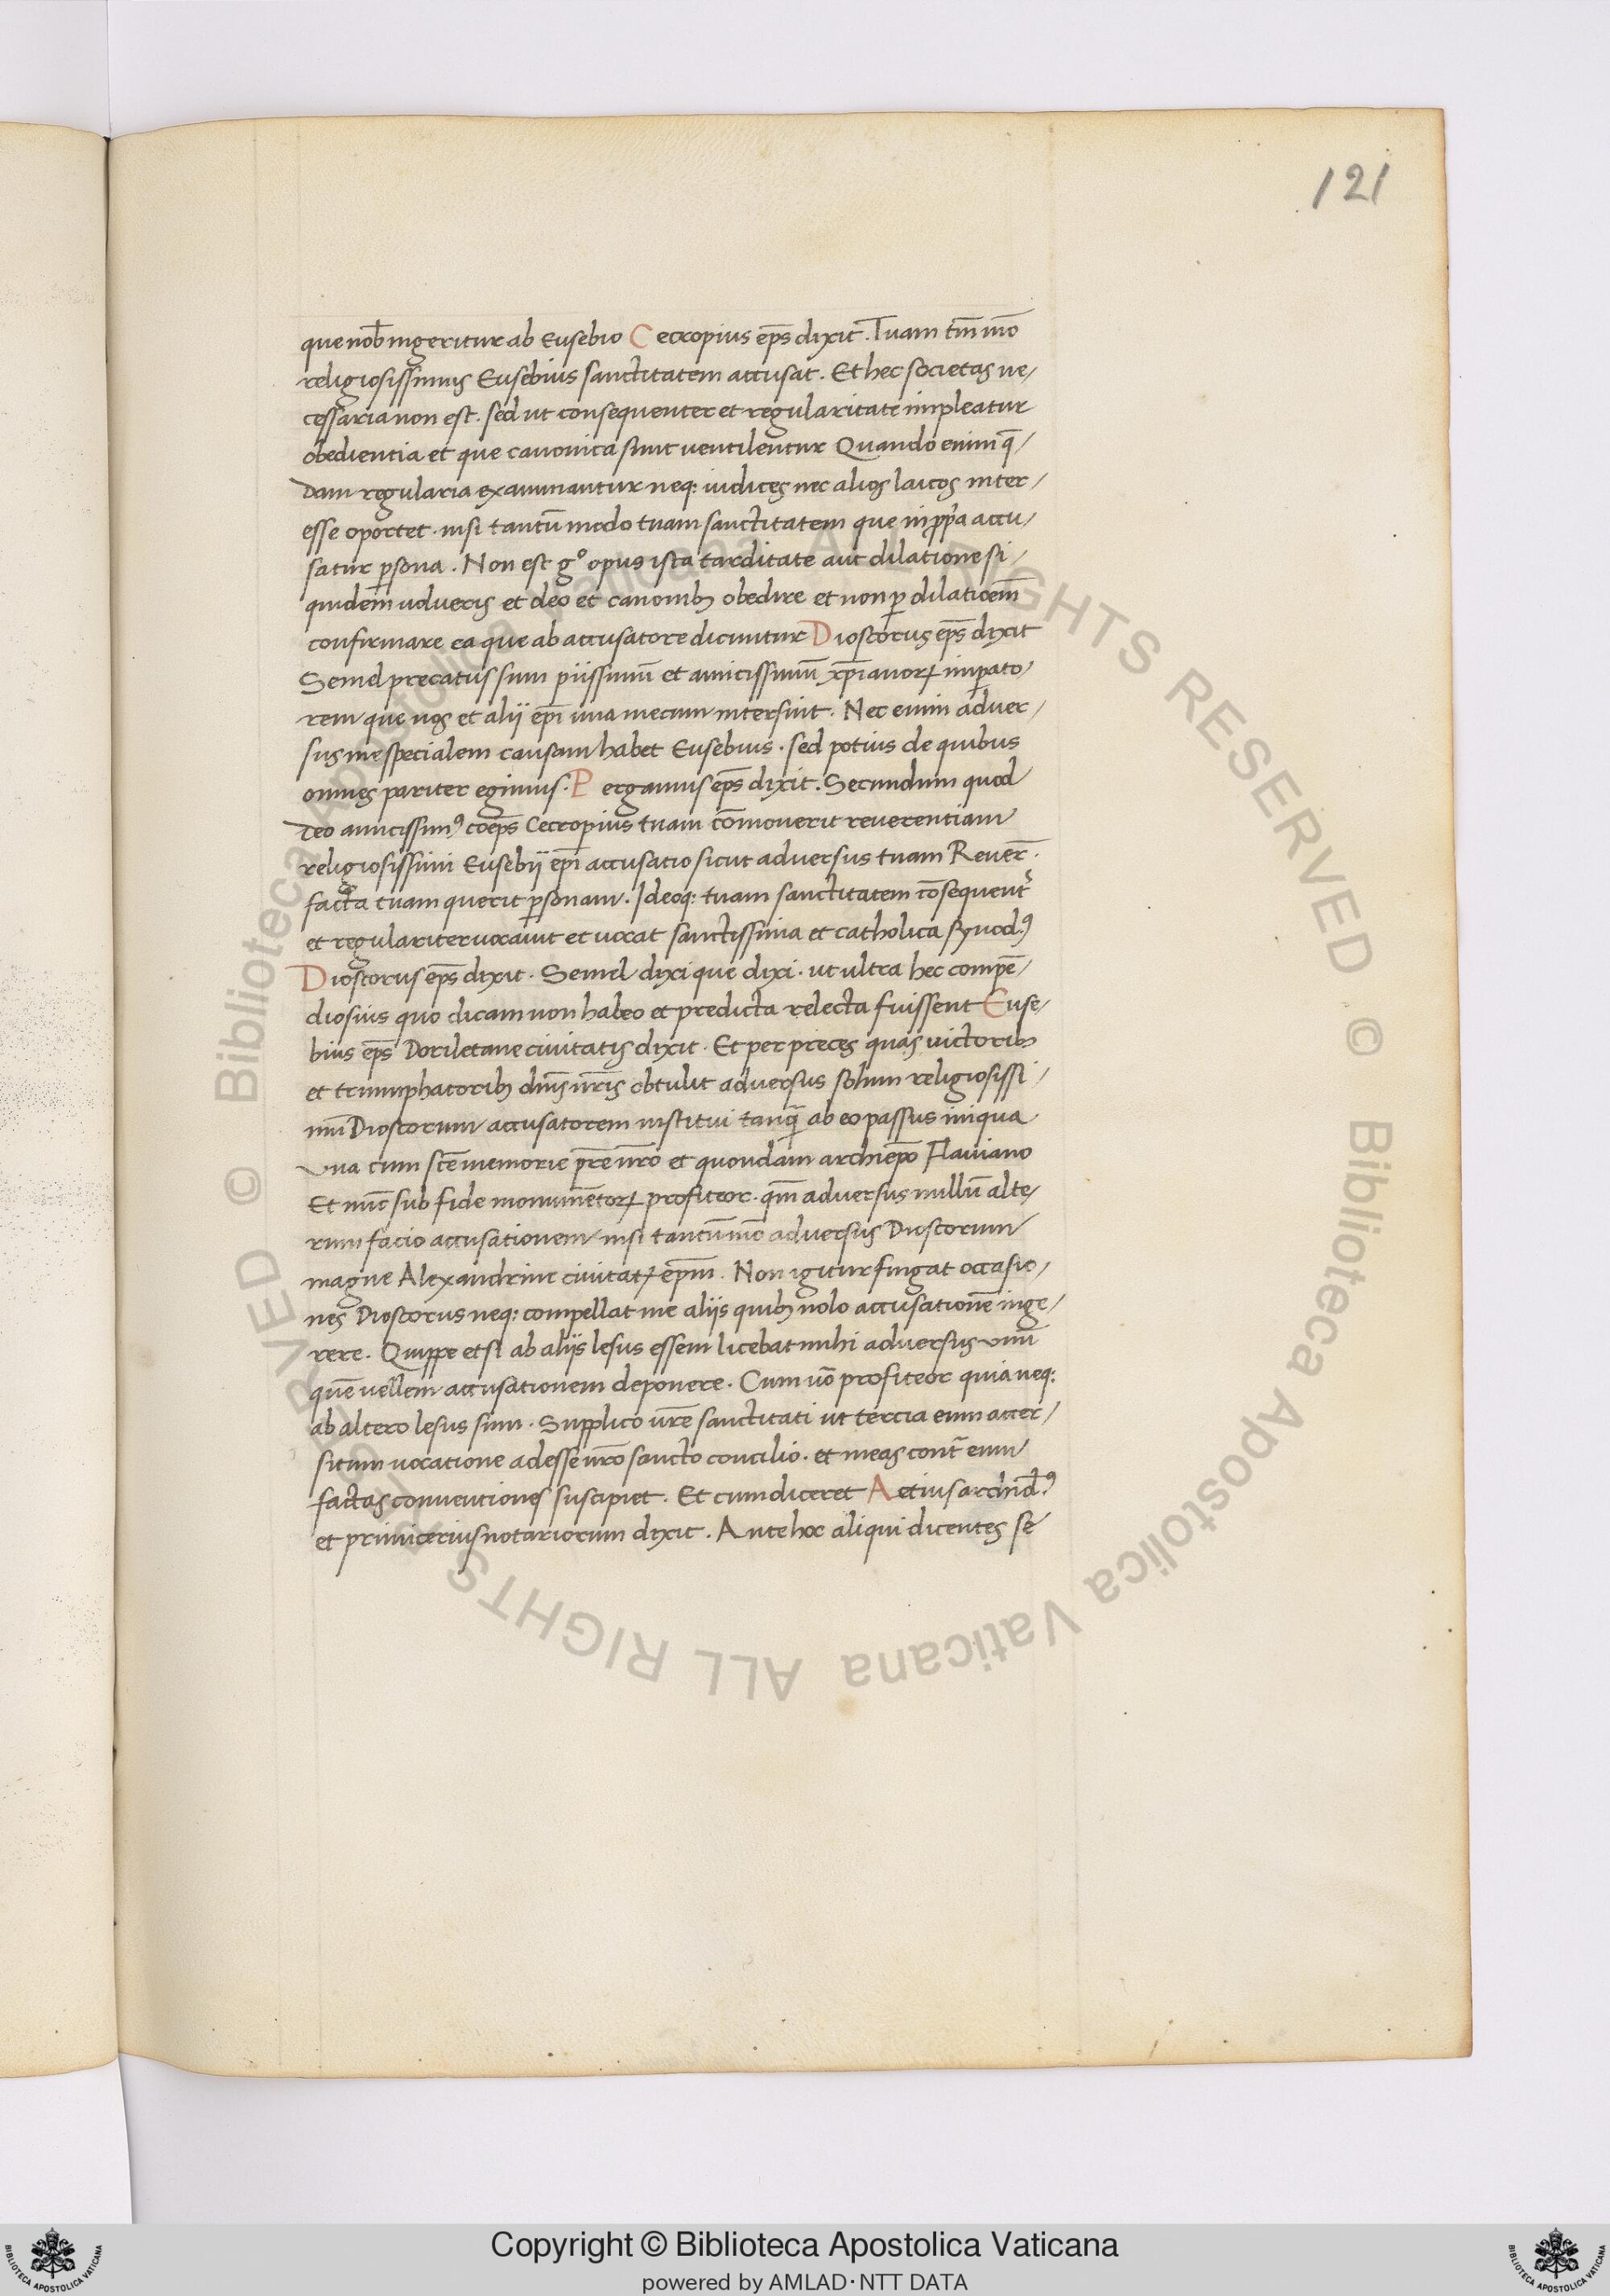 121
que nob̄ ingeritur ab Eusebio Cecropius ep̄s dixit. Tuam tm̄mō
religiosissimus Eusebius sanctitatem accusat. Et hec societas ne/
cessaria non est. sed ut consequenter et regularitate impleatur
obedientia et que canonica sunt ventilentur Quando enim q̄/
dam regularia examinantur neq: iudices nec alios laicos inter/
esse oportet. nisi tantū modo tuam sanctitatem que in ꝓp̄a accu/
satur ꝑsona. Non est gº opus ista tarditate aut dilatione si/
quidem volueris et deo et canonibꝫ obedire et non ꝑ dilatioēm
confirmare ea que ab accusatore dicuntur Dioscorus ep̄s dixit
Semel precatus sum piissimū et amicissimū xp̄ianoꝝ imꝑato/
rem que uos et alii ep̄i una mecum intersint. Nec enim adver/
sus me specialem causam habet Eusebius. sed potius de quibus
omnes pariter egimus. Pergamius ep̄s dixit. Secundum quod
deo amicissimꝰ coep̄s Cecropius tuam cōmoverit reverentiam
religiosissimi Eusebii ep̄i accusatio sicut adversus tuam Reuer̄.
facta tuam querit ꝑsonam. Ideoq: tuam sanctitatem cōsequent̄
et regulariter vocavit et vocat sanctissima et catholica synodꝰ
Dioscorus ep̄s dixit. Semel dixi que dixi. ut ultra hec compē/
diosius quo dicam non habeo et predicta relecta fuissent Euse/
bius ep̄s Doriletane civitatis dixit. Et per preces quas victoribꝫ
et triumphatoribꝫ dn̄is nr̄is obtulit adversus solum religiosissi/
mū Dioscorum accusatorem institui tanq̄ ab eo passus iniqua
Una cum scē memorie pr̄e nr̄o et quondam archiep̄o Flaviano
Et nūc sub fide monumētoꝝ profiteor. qm̄ adversus nullū alte/
rum facio accusationem nisi tantūmō adversus Dioscorum
magne Alexandrine civitatꝭ ep̄m. Non igitur fingat occasio/
nes Dioscorus neq: compellat me aliis quibꝫ nolo accusationē inge/
rere. Quippe etsi ab aliis lesus essem licebat mihi adversus unū
quē vellem accusationem deponere. Cum vō profiteor quia neq:
ab altero lesus sum. Supplico vr̄e sanctitati ut tercia eum accer/
situm vocatione adesse vr̄o sancto concilio. et meas cont̄ eum
factas conventiones suscipiet. Et cum diceret Aetius archid̄.ꝰ
et primicerius notariorum dixit. Ante hoc aliqui dicentes se
© Biblioteca Apostolica Vaticana ALL RIGHTS RESERVED © Biblioteca Apostolica Vaticana ALL RIGHTS RESERVED
Copyright © Biblioteca Apostolica Vaticana
powered by AMLAD·NTT DATA
BIBLIOTECA APOSTOLICA VATICANA
BIBLIOTECA APOSTOLICA VATICANA